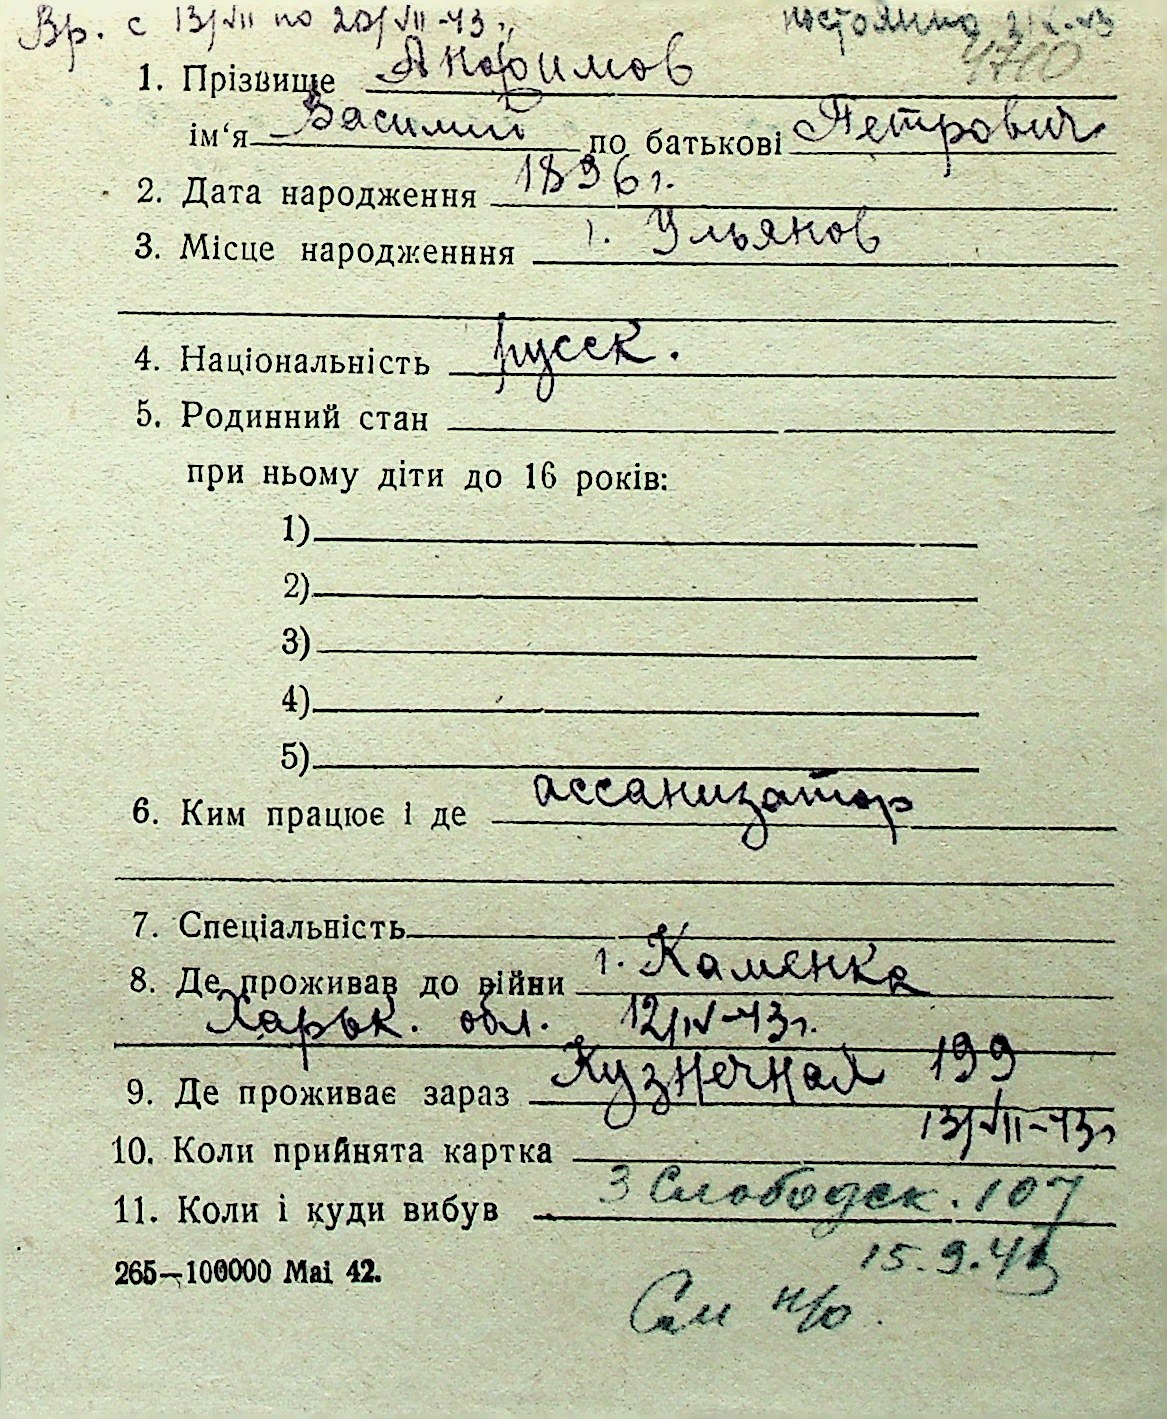 Вр. с 13/VII по 20/VII-43 г. постоянно
4710
1. Прізвище Анфимов
ім‘я Василий по батькові Петрович
2. Дата народження 1896 г.
3. Місце народженння г. Ульянов
4. Національність русск.
5. Родинний стан
при ньому діти до 16 років:
1)
2)
3)
4)
5)
6. Ким працює і де ассанизатор
7. Спеціальність
8. Де проживав до війни г. Каменка
Харьк. обл. 12/IV-43 г.
9. Де проживає зараз Кузнечная 199
13/VII-43 г.
10. Коли прийнята картка
11. Коли і куди вибув 3 Слободск. 107
15.9.43
265—100000 Mai 42.
См н/о.